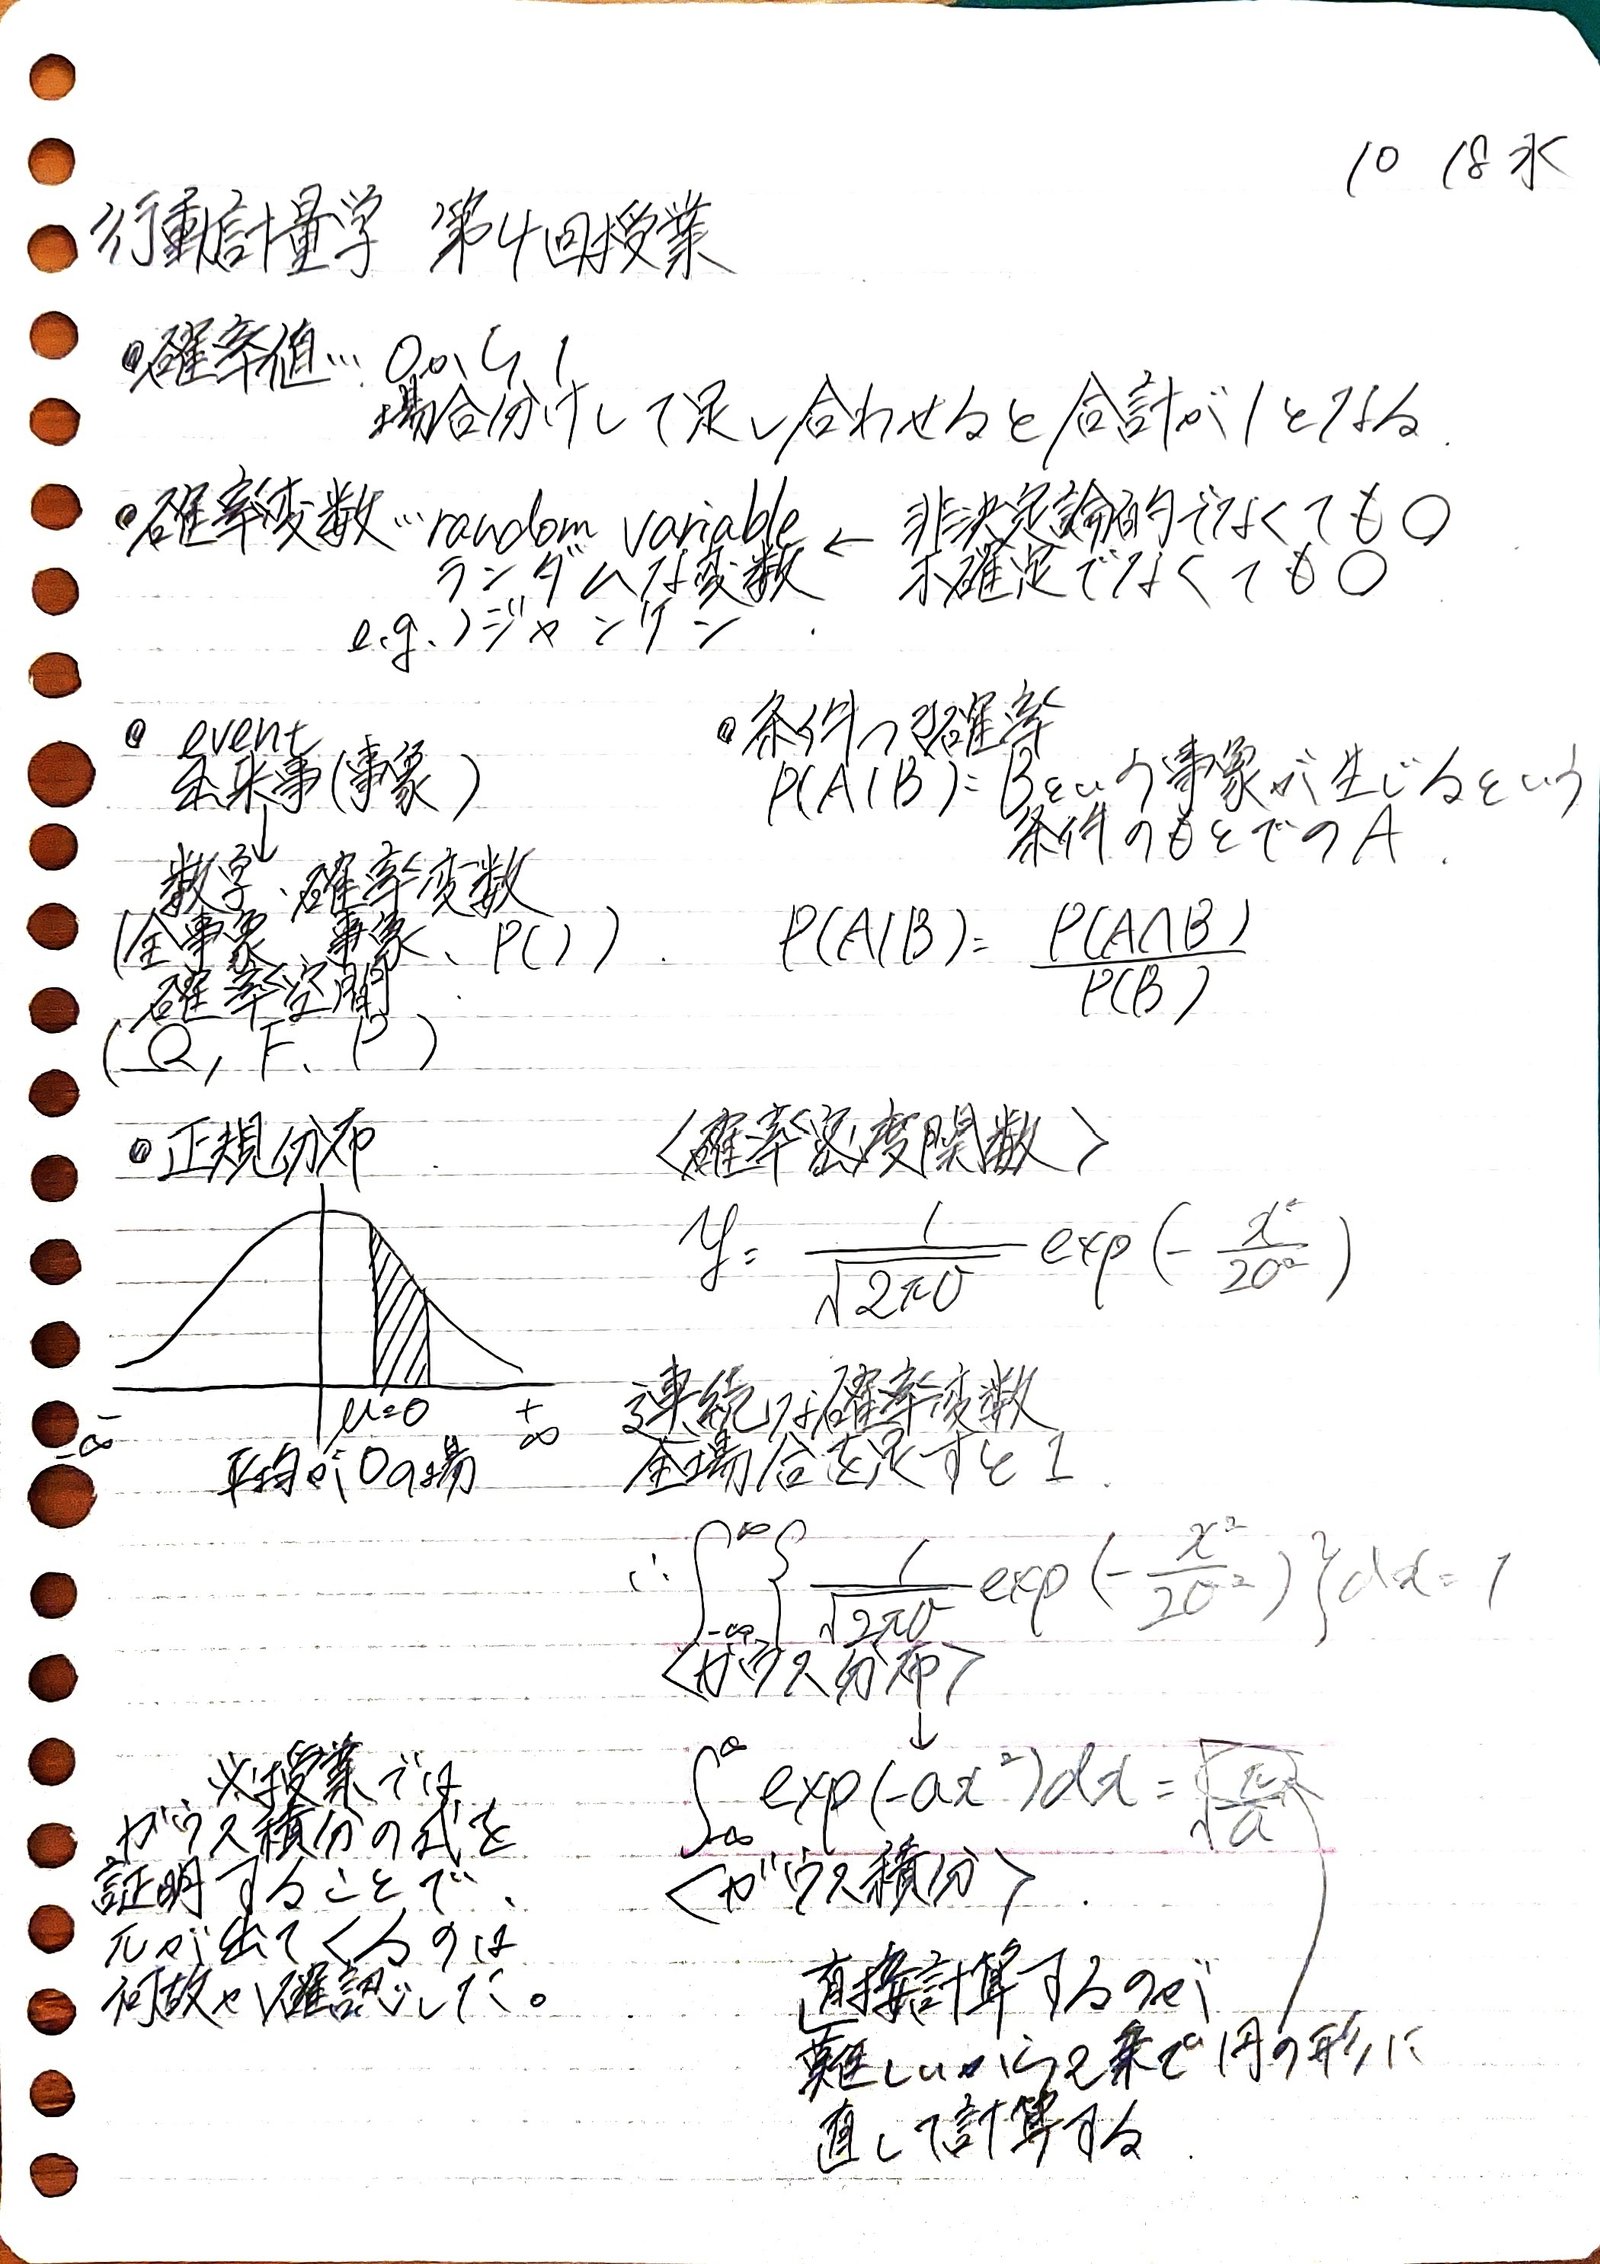 10 18 水
行動計量学 第4回授業
・確率値… 0から1
場合分けして足し合わせると合計が1となる.
・確率変数…random variable ← 非決定論的でなくても○
ランダムな変数 不確定でなくても○
e.g.)ジャンケン
・event
出来事(事象)
↓
数字、確率変数
(全事象、事象、P( ))
確率空間
(Ω, F, P)
・条件つき確率
P(A|B)= Bという事象が生じるという
条件のもとでのA.
P(A|B)= P(A∩B)/P(B)
・正規分布
-∞ μ=0 +∞
平均が0の場
<確率密度関数>
y= 1/√2πσ exp(-x²/2σ²)
連続な確率変数
全場合を足すと1.
∴∫_{-∞}^{∞}{1/√2πσ exp(-x²/2σ²)}dx=1
<ガウス分布>
↓
∫_{-∞}^{∞} exp(-ax²)dx=√π/a
<ガウス積分>
直接計算するのが
難しいから2乗で円の形に
直して計算する.
※授業では
ガウス積分の式を
証明することで、
πが出てくるのは
何故か確認した。